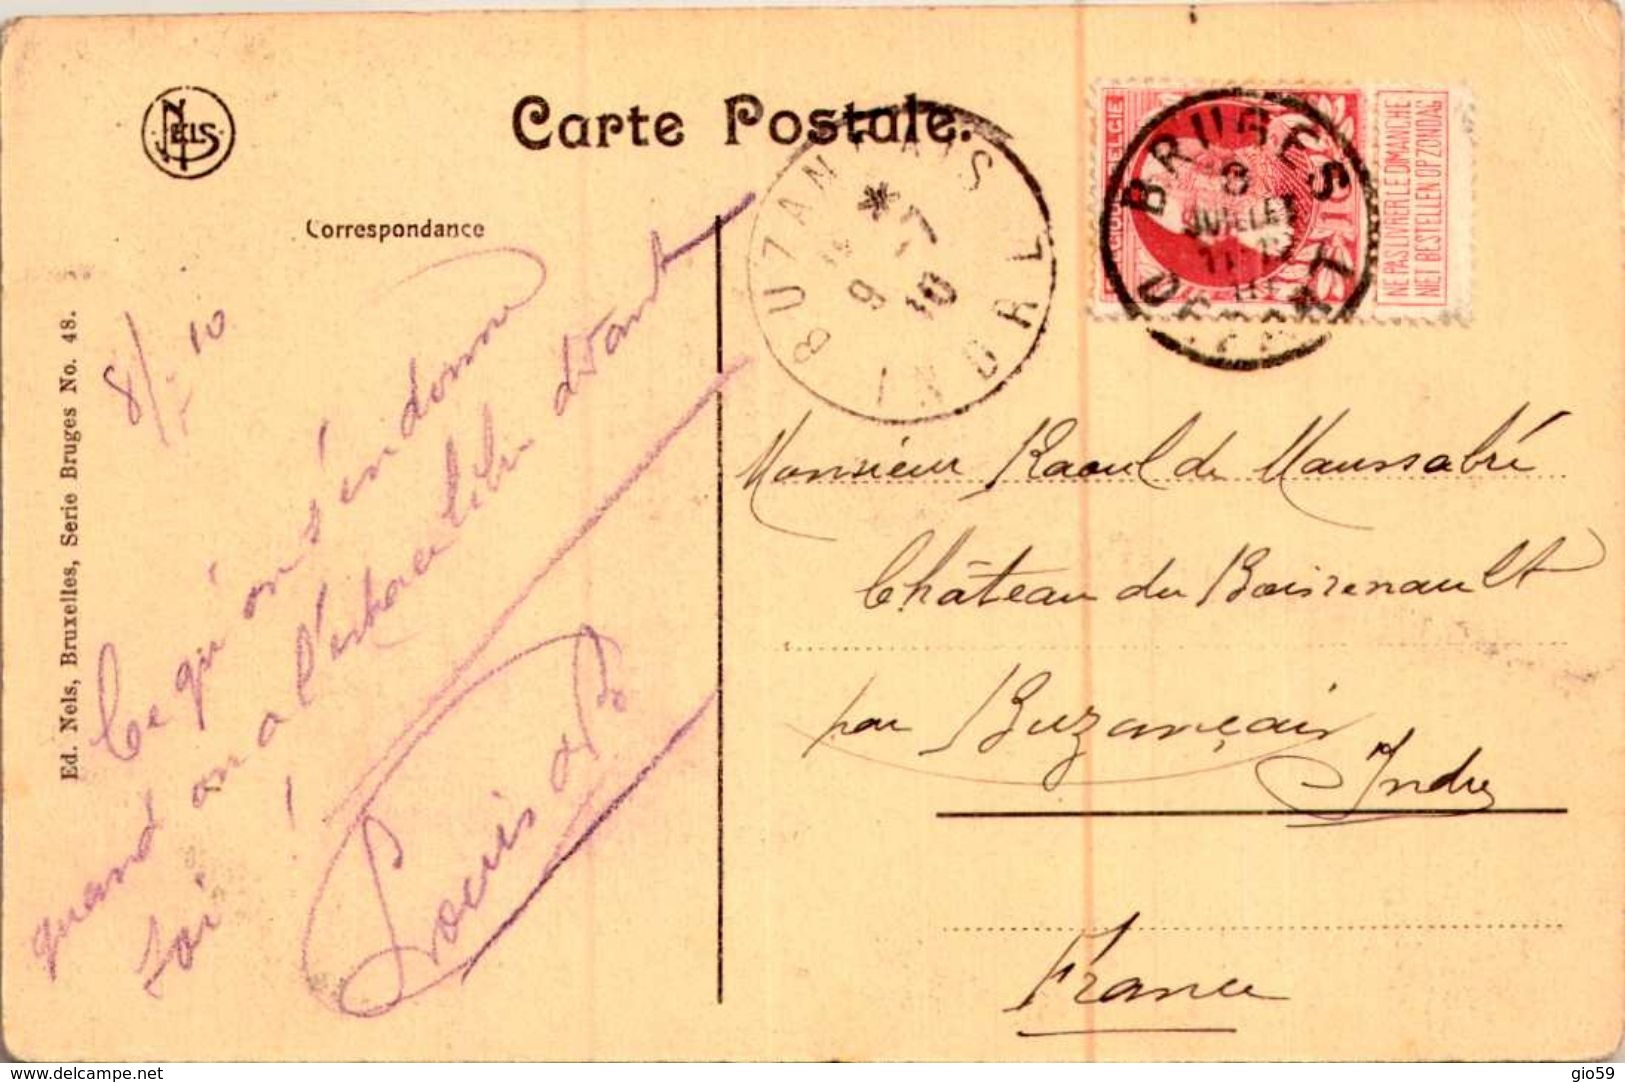 NELS
Carte Postale.
Correspondance
8/7 10
Ce qu'on s'en donne
quand on a l'espace libre devant
soi !
Louis de B
Ed. Nels, Bruxelles, Serie Bruges No. 48.
BUZANÇAIS
* 9 -7 10
INDRE
BELGIQUE BELGIE
10
NE PAS LIVRER LE DIMANCHE
NIET BESTELLEN OP ZONDAG
BRUGES
8
JUILLET
1910
DEPART
Monsieur Raoul de Maussabré
Château du Boisrenault
par Buzançais
Indre
France
www.delcampe.net
gio59